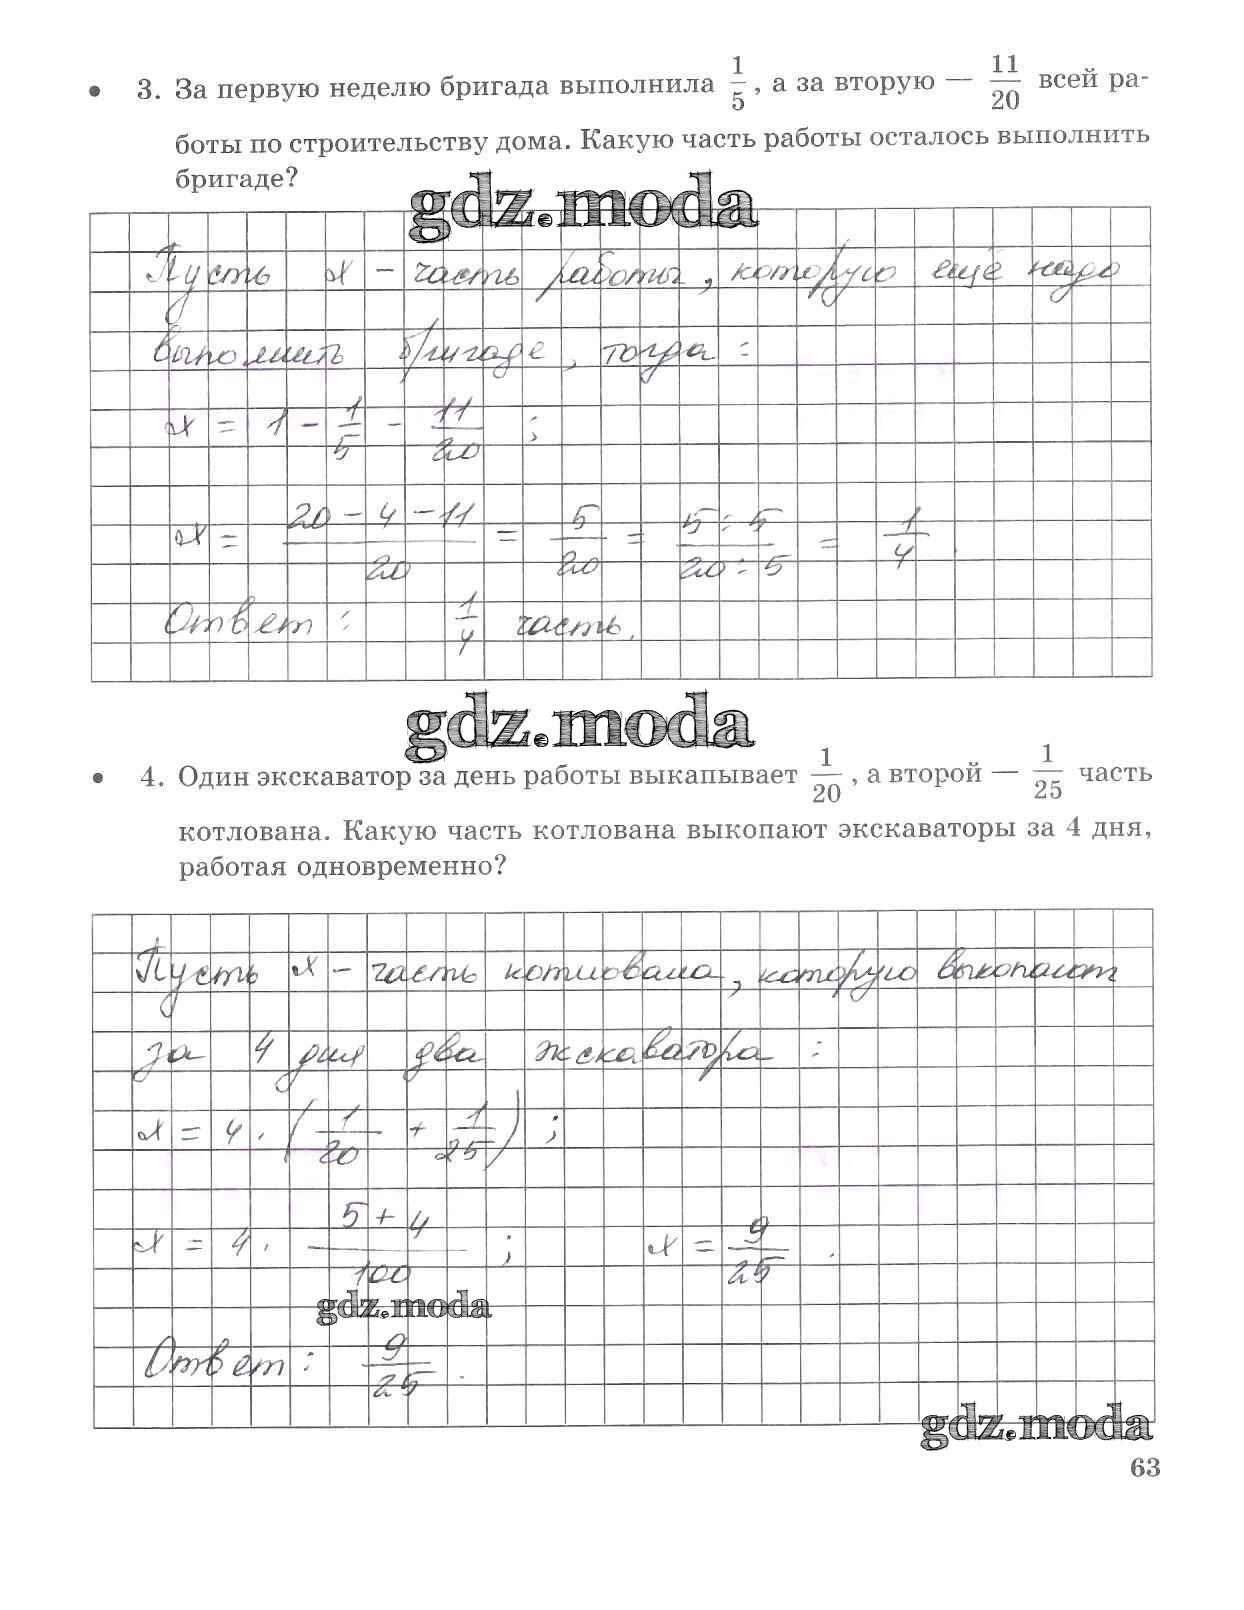 3. За первую неделю бригада выполнила 1/5, а за вторую — 11/20 всей ра-
боты по строительству дома. Какую часть работы осталось выполнить
бригаде?
gdz.moda
Пусть x - часть работы, которую ещё надо
выполнить бригаде, тогда:
x = 1 - 1/5 - 11/20 ;
x = (20 - 4 - 11)/20 = 5/20 = (5 : 5)/(20 : 5) = 1/4.
Ответ: 1/4 часть.
gdz.moda
4. Один экскаватор за день работы выкапывает 1/20, а второй — 1/25 часть
котлована. Какую часть котлована выкопают экскаваторы за 4 дня,
работая одновременно?
Пусть x - часть котлована, которую выкопают
за 4 дня два экскаватора :
x = 4 · (1/20 + 1/25) ;
x = 4 · (5 + 4)/100 ; x = 9/25 .
gdz.moda
Ответ: 9/25 .
gdz.moda
63